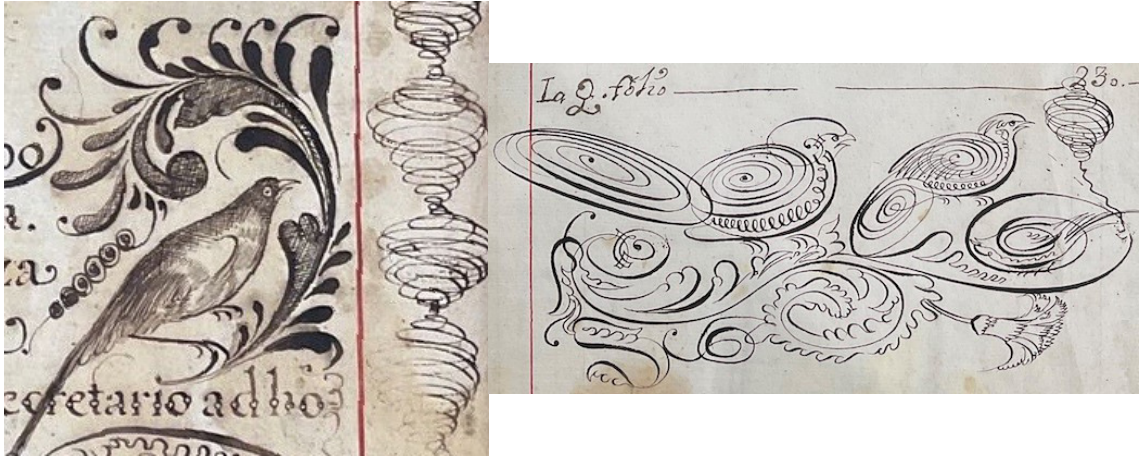 a.
za
ecretario ad ho
La Q. folio
230.